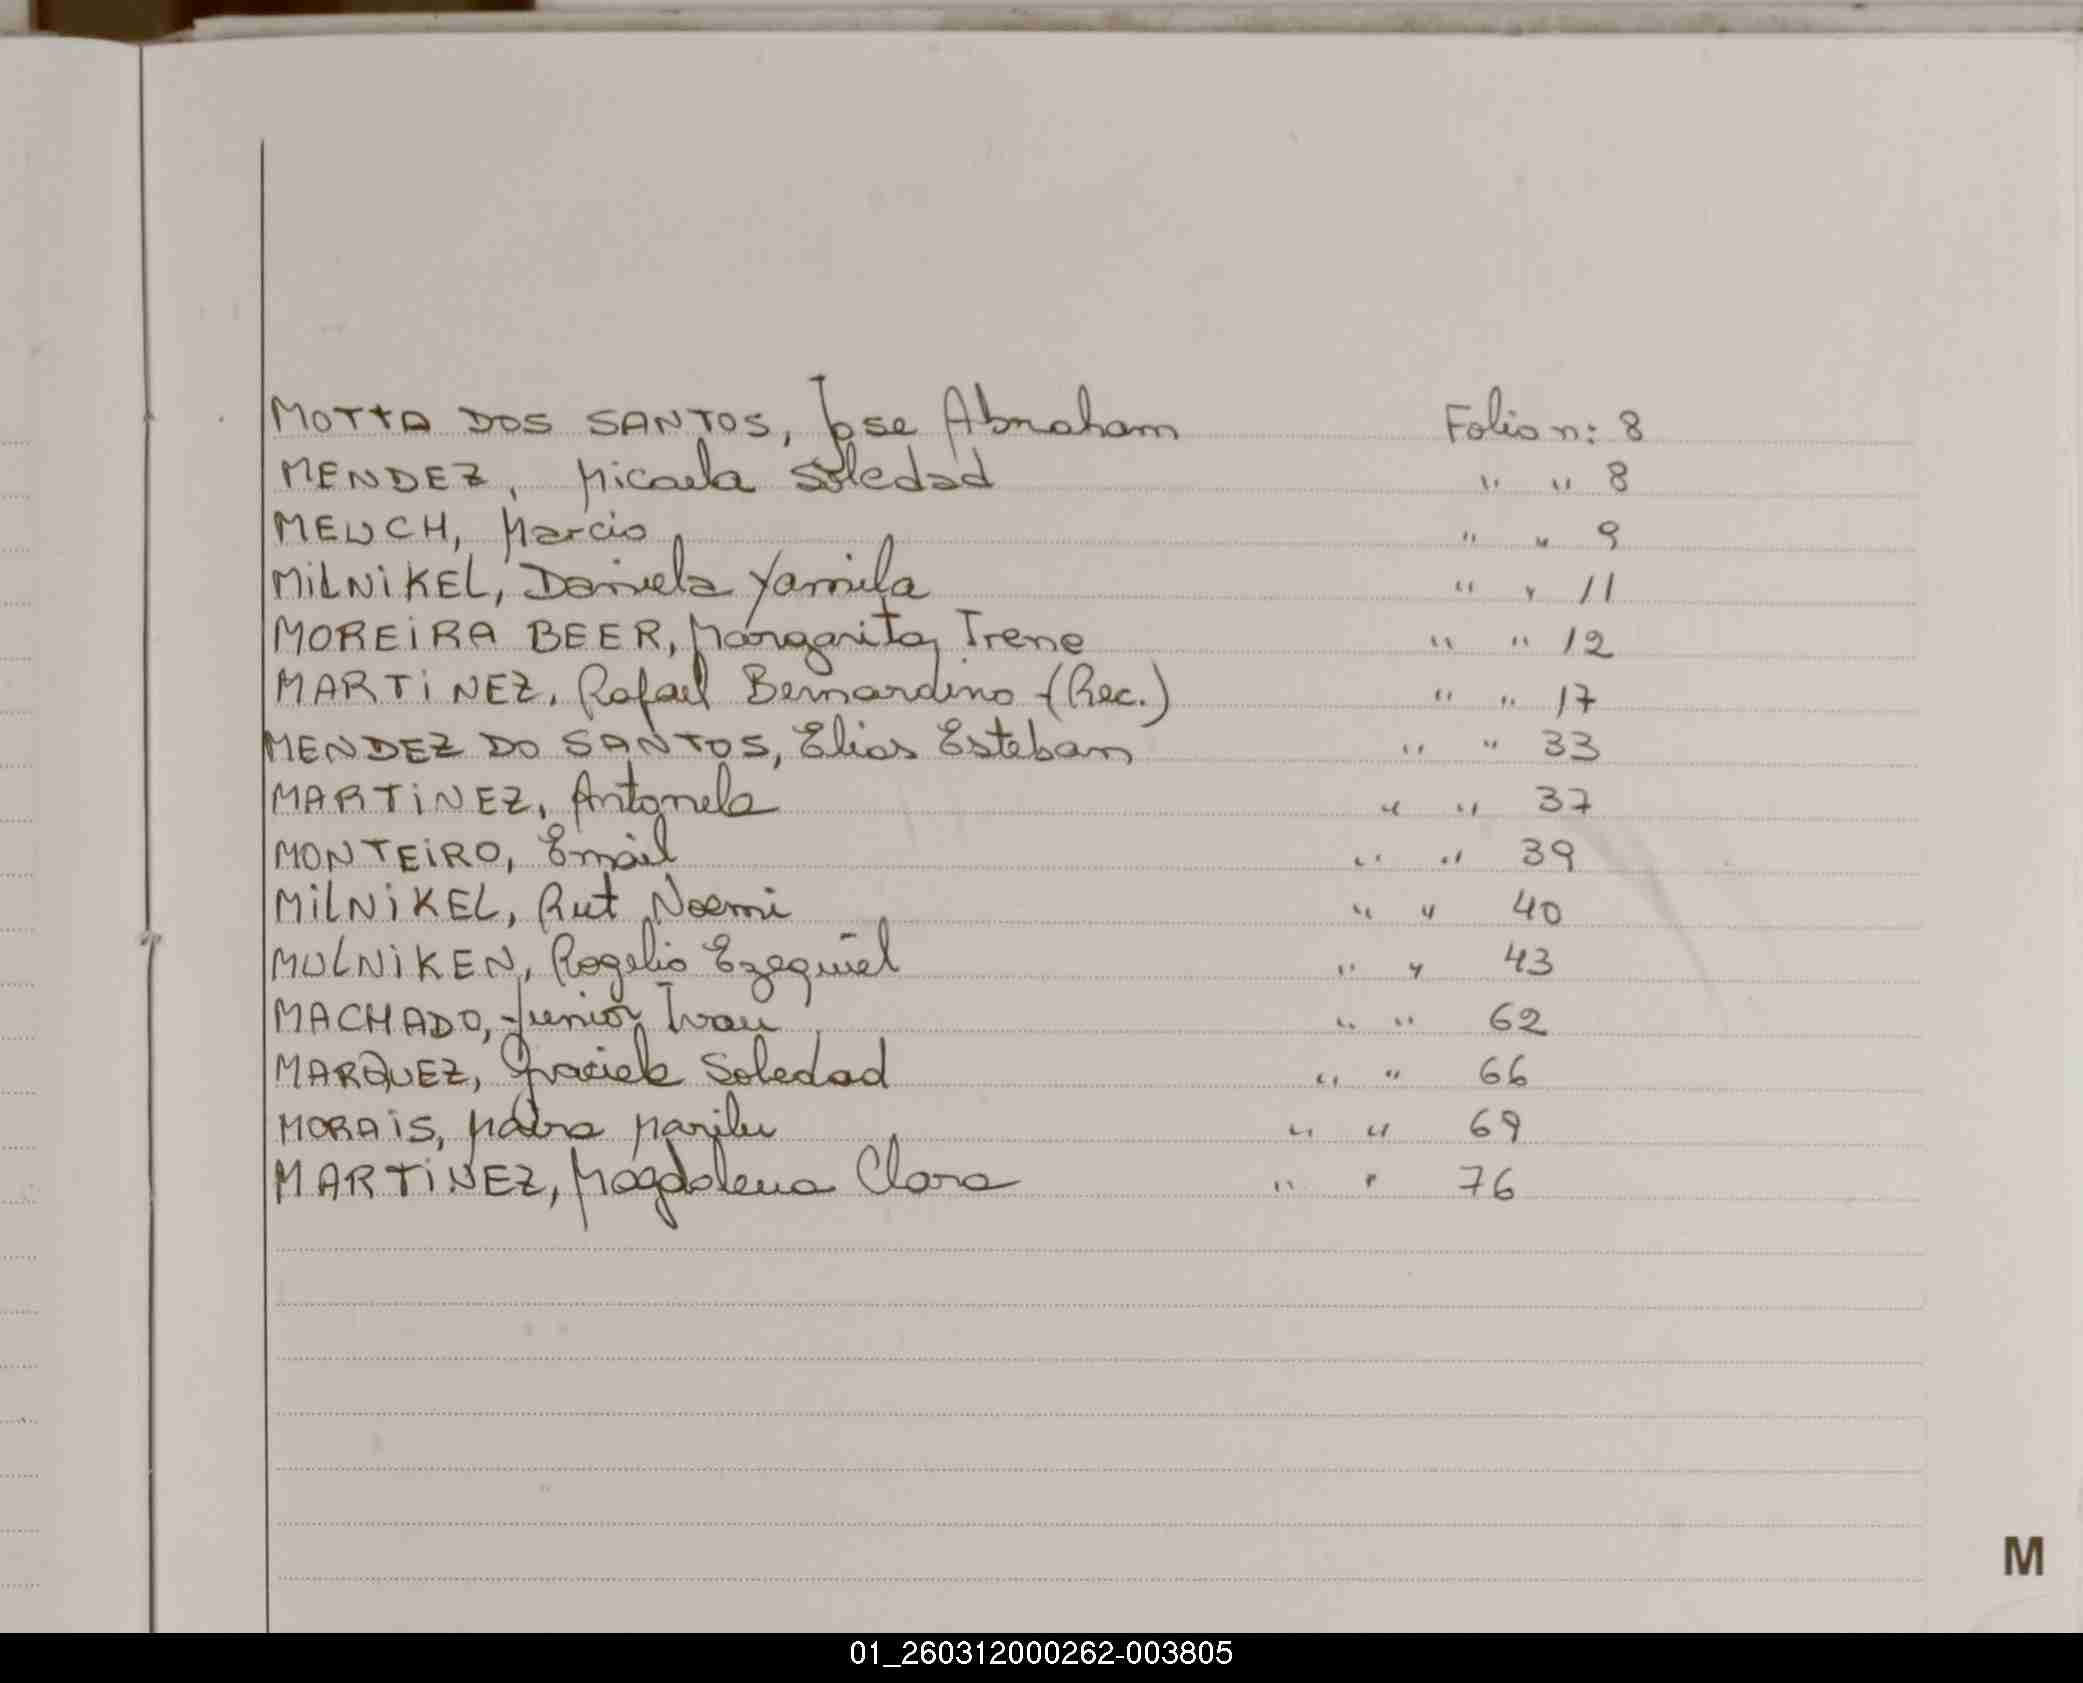 MOTTA DOS SANTOS, Jose Abraham Folio n: 8
MENDEZ, Micaela Soledad " " 8
MEUCH, Marcio " " 9
MILNIKEL, Daniela Yamila " " 11
MOREIRA BEER, Margarita Irene " " 12
MARTINEZ, Rafael Bernardino (Rec.) " " 17
MENDEZ DO SANTOS, Elias Esteban " " 33
MARTINEZ, Antonela " " 37
MONTEIRO, Email " " 39
MILNIKEL, Rut Noemi " " 40
MULNIKEN, Rogelio Ezequiel " " 43
MACHADO, Junior Ivan " " 62
MARQUEZ, Graciela Soledad " " 66
MORAIS, Marilu " " 69
MARTINEZ, Magdalena Clara " " 76
M
01_260312000262-003805